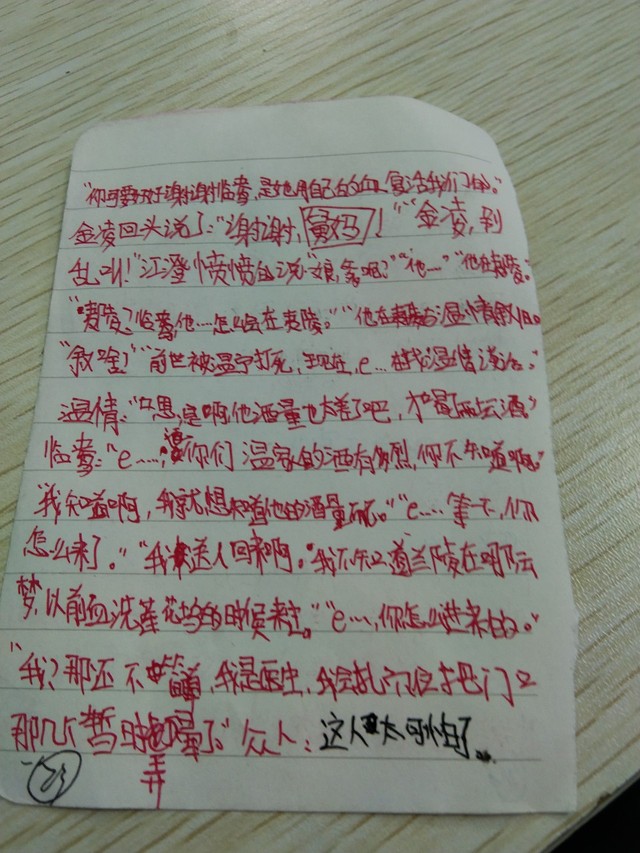 "你可要好好谢谢临鸯,是她用自己的血复活我们的。"
金凌回头说了:"谢谢,舅妈!""金凌,别
乱叫!"江澄愤愤的说"娘,爹呢?""他…""他在夷陵。"
"夷陵?临鸯,他….怎么会在夷陵。""他在夷陵与温情叙旧。"
"叙啥?""前世被温宁打死,现在,e…在找温情谈话。"
温情:"是啊他酒量也太差了吧,才喝两坛酒。"
临鸯:"e…..,你们温家的酒有多烈,你不知道啊。"
"我知道啊,我就想知道他的酒量而已。""e….等一下,你
怎么来了。""我送人回来啊。我不知道兰陵在哪云
梦,以前血洗莲花坞的时候来过。""e…,你怎么进来的。"
"我?那还不简单,我是医生,我会扎穴位把门口
那几个暂时弄晕了。"众人:这人太可怕了…
23